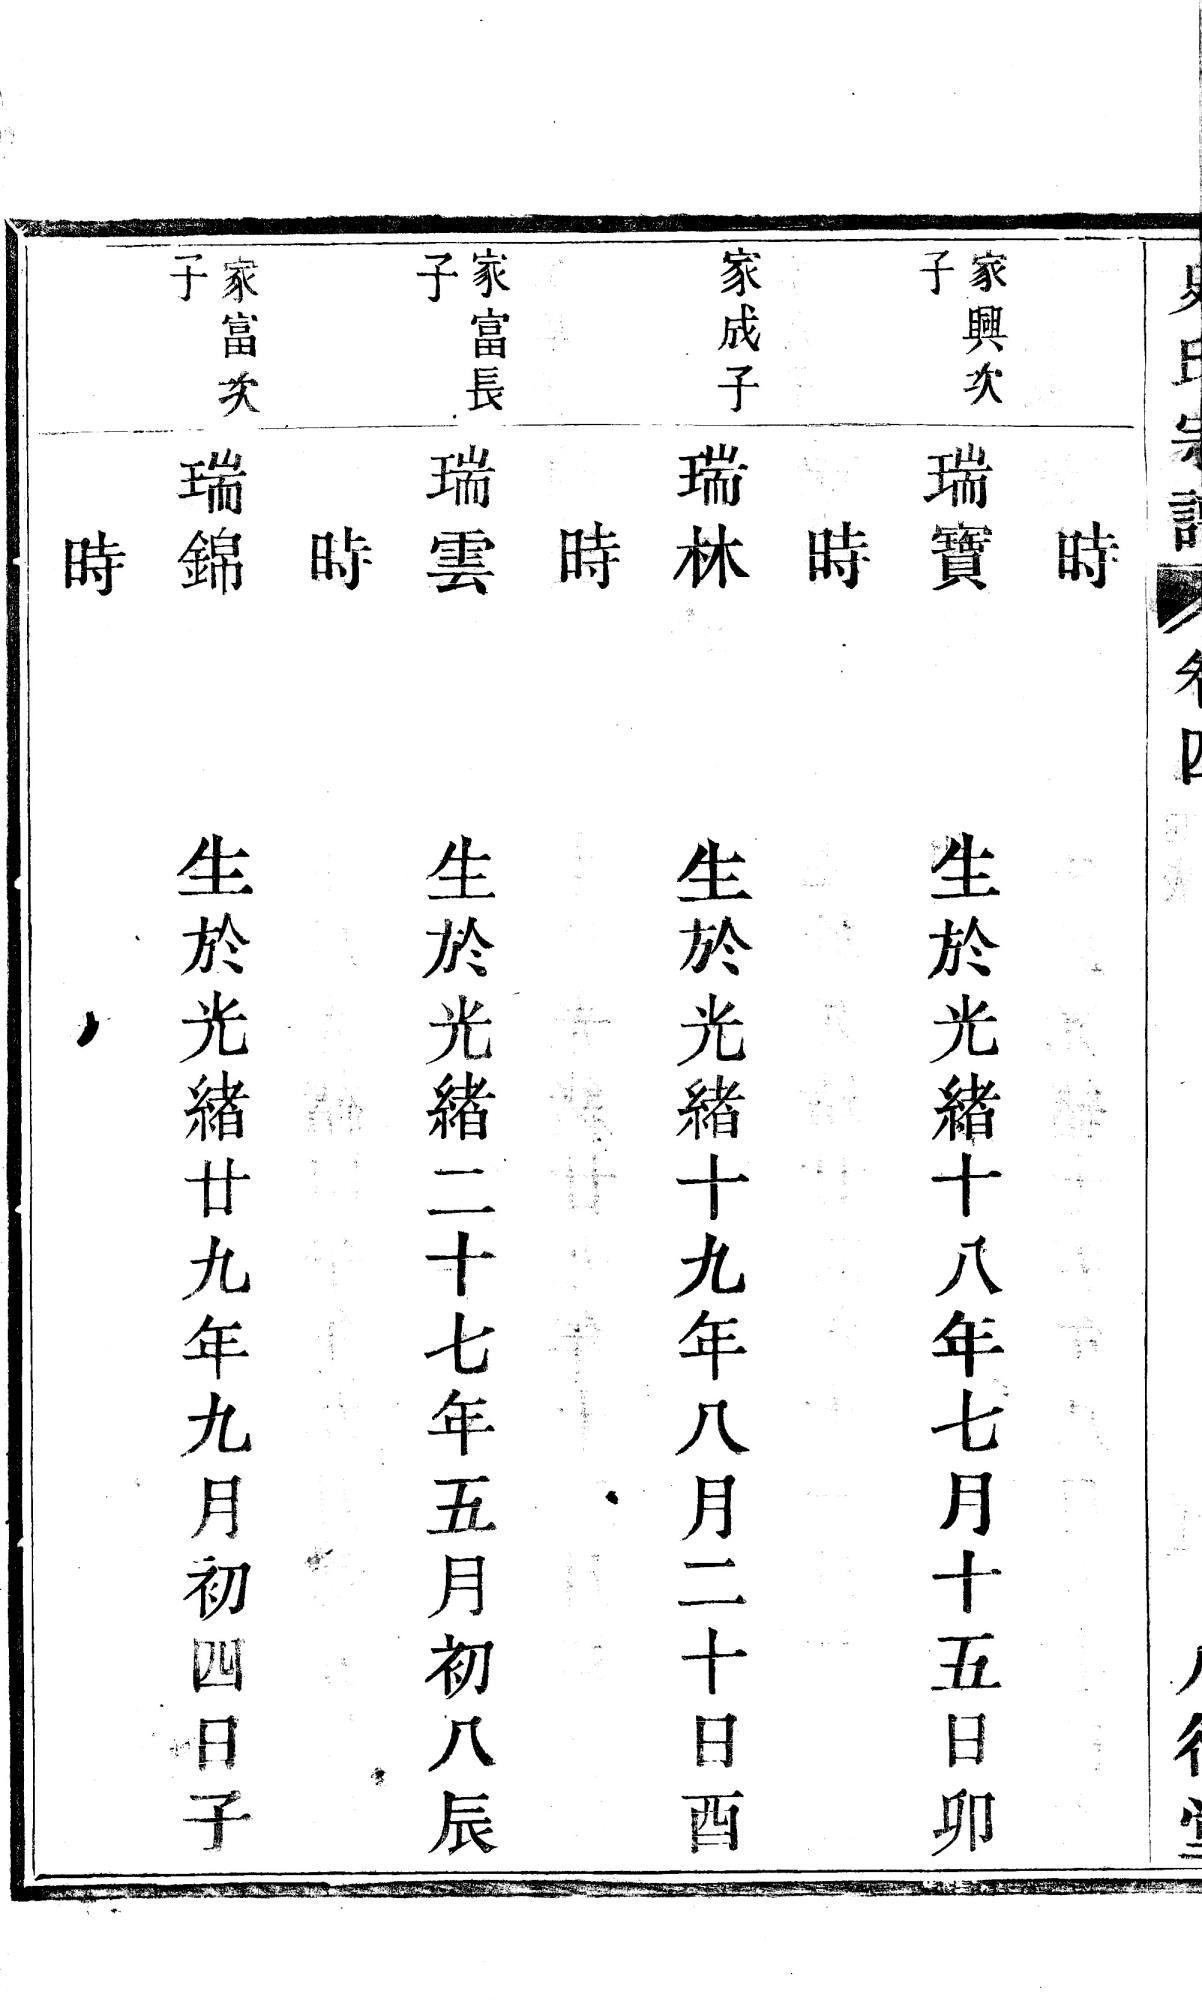 氏宗譜 卷四
時
家興次
子
瑞寶 生於光緒十八年七月十五日卯
時
家成子
瑞林 生於光緒十九年八月二十日酉
時
家富長
子
瑞雲 生於光緒二十七年五月初八辰
時
家富次
子
瑞錦 生於光緒廿九年九月初四日子
時